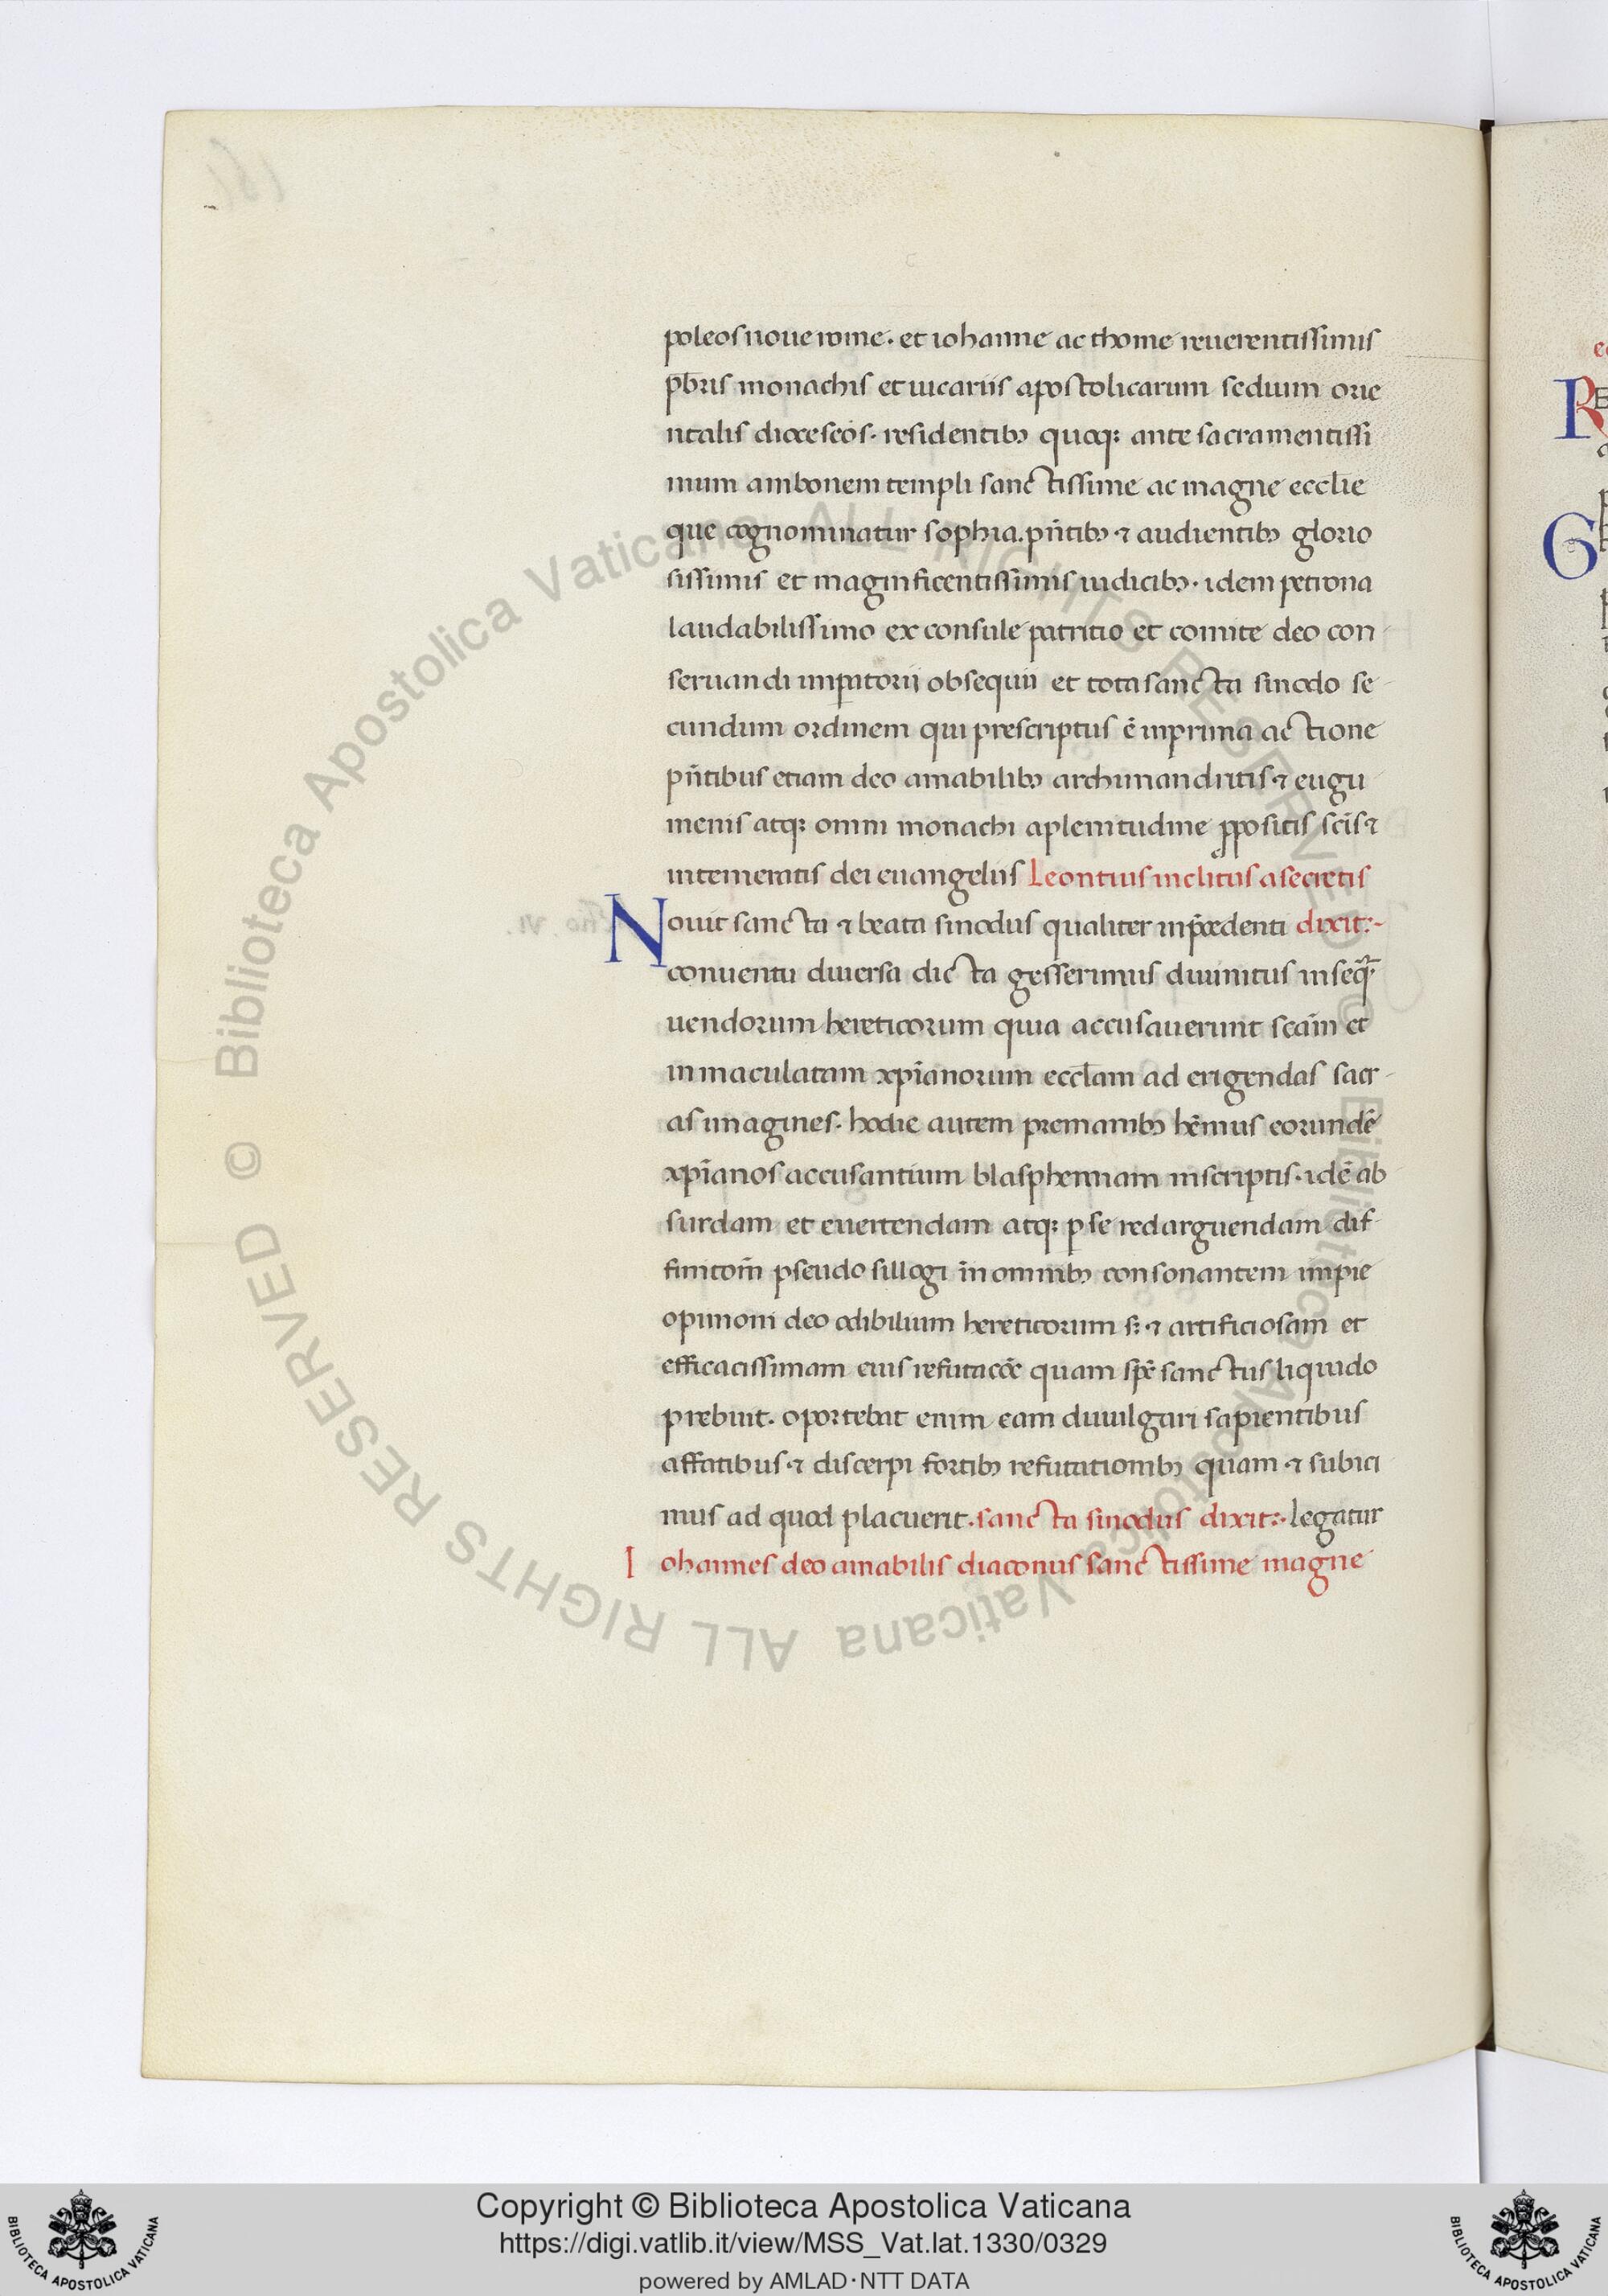 poleos noue rome. et iohanne ac thome reuerentissimis
pb̄ris monachis et uicariis apostolicarum sedium orie
ntalis dioceseos. residentibꝫ quoqꝫ ante sacramentissi
mum ambonem templi sanctissime ac magne eccl̄ie
que cognominatur sophia. pn̄tibꝫ ⁊ audientibꝫ glorio
sissimis et magnificentissimis iudicibꝫ. idem petrona
laudabilissimo ex consule patritio et comite deo con
seruandi imꝑatorii obsequii et tota sancta sinodo se
cundum ordinem qui prescriptus ē in prima actione
pn̄tibus etiam deo amabilibꝫ archimandritis ⁊ eugu
menis atqꝫ omni monachi a plenitudine ꝓpositis sc̄is ⁊
intemeratis dei euangeliis Leontius inclitus a secretis
Nouit sancta ⁊ beata sinodus qualiter in p̄cedenti dixit:-
conuentu diuersa dicta gesserimus diuinitus inseq̄
uendorum hereticorum quia accusauerunt sc̄am et
inmaculatam xp̄ianorum eccl̄am ad erigendas sacr
as imagines. hodie autem pre manibꝫ hēmus eorundē
xp̄ianos accusantium blasphemiam in scriptis. idē ab
surdam et euertendam atqꝫ ꝑ se redarguendam dif
finitōm̄ pseudo sillogi in omnibꝫ consonantem impie
opinioni deo odibilium hereticorum sꝫ ⁊ artificiosam et
efficacissimam eius refutacōē quam sp̄s sanctus liquido
prebuit. oportebat enim eam diuulgari sapientibus
affatibus ⁊ discerpi fortibꝫ refutationibꝫ quam ⁊ subici
mus ad quod placuerit. sancta sinodus dixit:. legatur
Iohannes deo amabilis diaconus sanctissime magne
Copyright © Biblioteca Apostolica Vaticana
https://digi.vatlib.it/view/MSS_Vat.lat.1330/0329
powered by AMLAD·NTT DATA